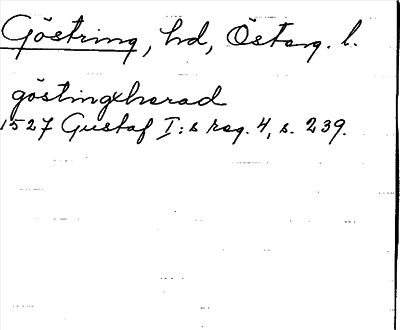 Göstring, hd, Österg. l.
göstingxharad
1527 Gustaf I:s reg. 4, s. 239.